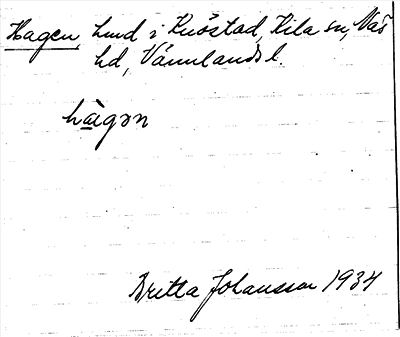 Hagen, lund i Knöstad, Kila sn, Näs
hd, Värmlands l.
hàgən
Britta Johansson 1934